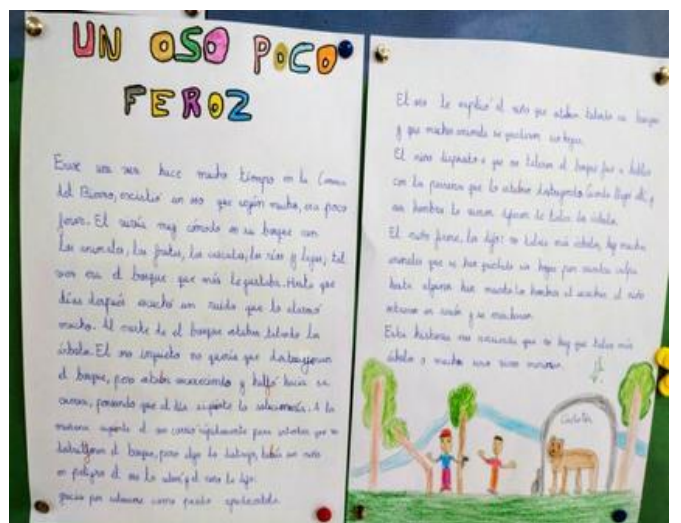 UN OSO POCO
FEROZ
Erase una vez hace mucho tiempo en la Comarca
del Bierzo, existió un oso que según mucho, era poco
feroz. El vivía muy cómodo en su bosque con
los animales, las frutas, las cascadas, los ríos y lagos, tal
vez era el bosque que más le gustaba. Hasta que
días después escuchó un ruido que lo alarmó
mucho. Al norte de el bosque estaban talando los
árboles. El oso inquieto no quería que destruyeran
el bosque, pero estaba oscureciendo y huyó hacia su
cueva, pensando que al día siguiente lo solucionaría. A la
mañana siguiente el oso corrió rápidamente para intentar que no
destruyeran el bosque, pero algo le distrajo, había un niño
en peligro el oso lo salvó y el niño le dijo:
gracias por salvarme como puedo
El oso le explicó al niño que estaban talando su bosque
y que muchos animales se quedaron sin hogar.
El niño dispuesto a que no talaran el bosque fue a hablar
con las personas que lo estaban destruyendo. Cuando llegó allí,
los hombres dejaron de talar los árboles.
El niño firme, les dijo: no taléis más árboles, hay muchos
animales que se han quedado sin hogar por vuestra culpa
hasta algunos han muerto. Los hombres al escuchar al niño
entraron en razón y se marcharon.
Esta historia nos enseña que no hay que talar más
árboles o muchos seres vivos morirán.